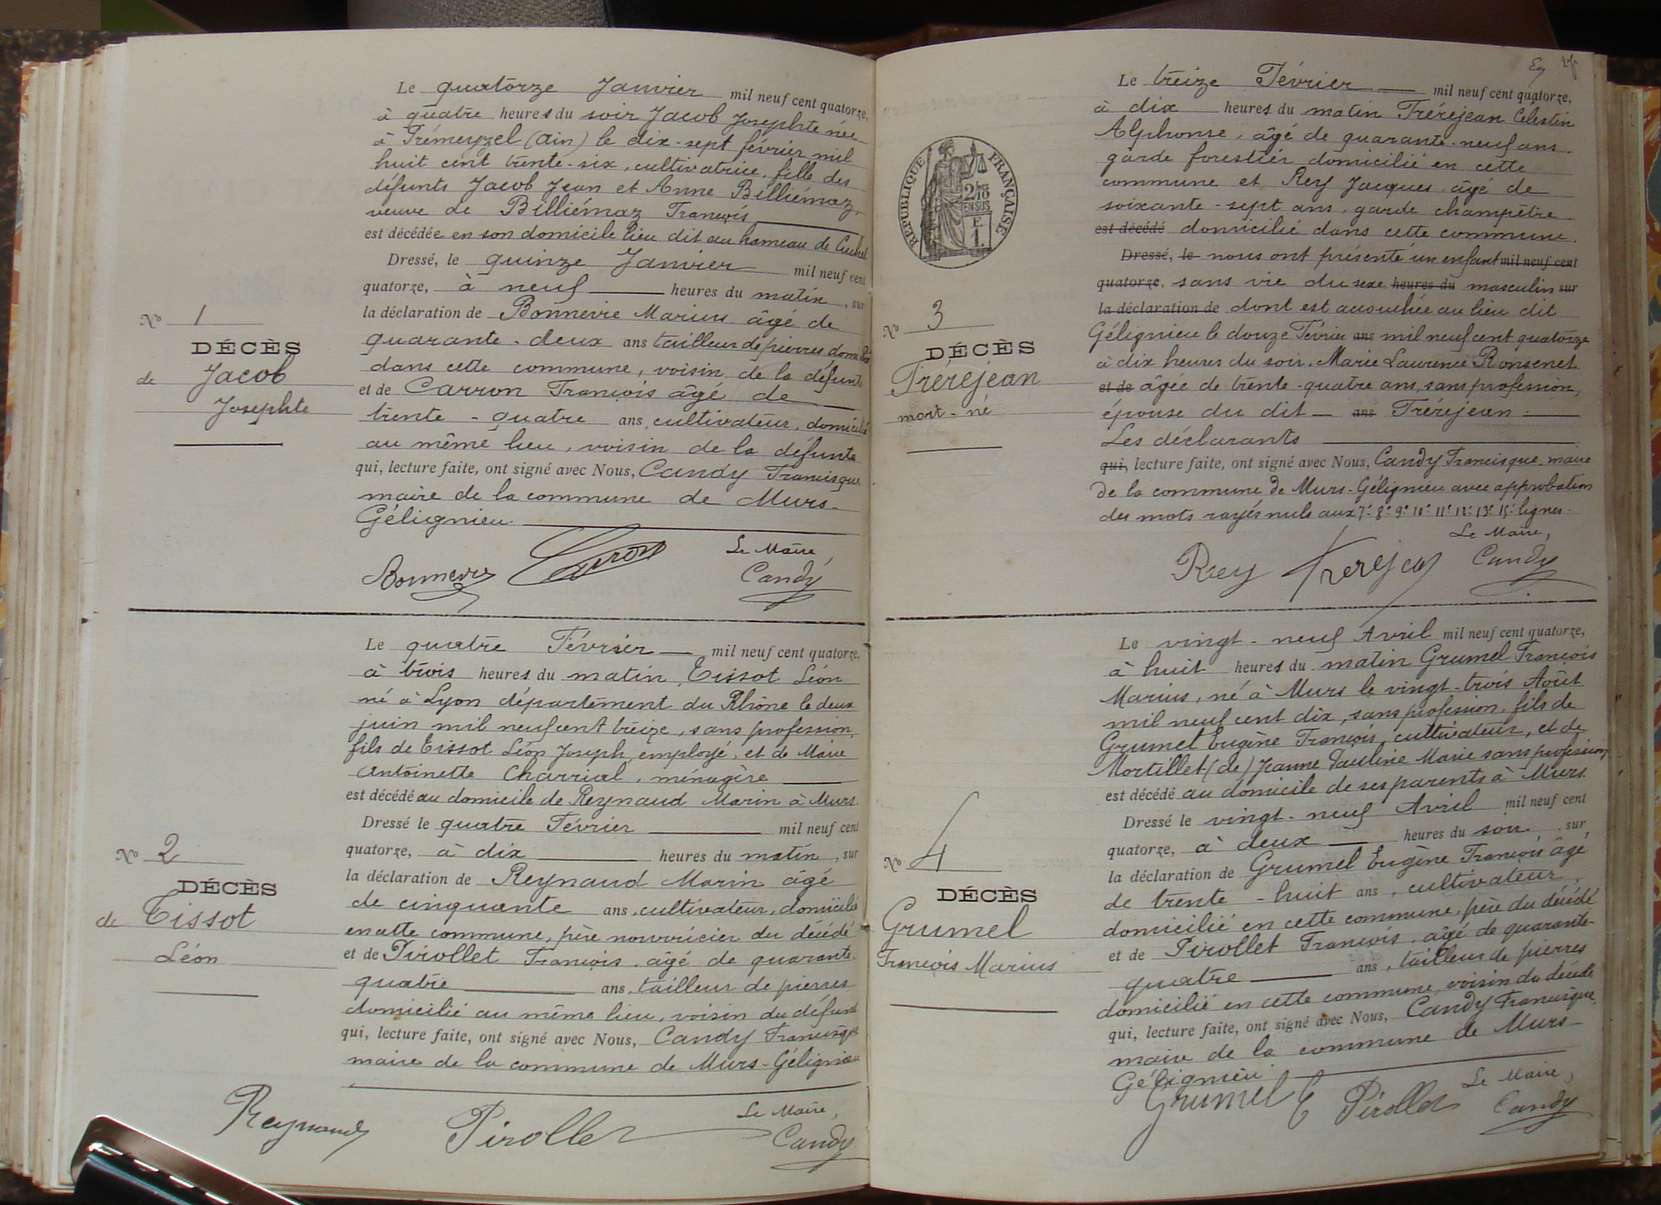 Le quatorze Janvier — mil neuf cent quatorze,
à quatre heures du soir Jacob Josephte née
à Trémeyzel (Ain) le dix-sept février mil
huit cent trente-six, cultivatrice, fille des
défunts Jacob Jean et Anne Billiémaz,
veuve de Billiémaz François
est décédée en son domicile lieu dit au hameau de
Dressé, le quinze Janvier mil neuf cent
quatorze, à neuf heures du matin, sur
la déclaration de Bonnevie Marius âgé de
quarante-deux ans tailleur de pierres
dans cette commune, voisin de la défunte
et de Carron François âgé de
trente-quatre ans, cultivateur, domicilié
au même lieu, voisin de la défunte
qui, lecture faite, ont signé avec Nous, Candy Francisque
maire de la commune de Murs-
Gélignieu.
Le Maire,
Bonnevie Carron Candy
No 1
DÉCÈS
de Jacob
Josephte
Le quatre Février — mil neuf cent quatorze,
à trois heures du matin, Tissot Léon
né à Lyon département du Rhône le deux
juin mil neuf cent treize, sans profession,
fils de Tissot Léon Joseph, employé, et de Marie
Antoinette Charrial, ménagère
est décédé au domicile de Reynaud Marin à Murs.
Dressé le quatre Février mil neuf cent
quatorze, à dix heures du matin, sur
la déclaration de Reynaud Marin âgé
de cinquante ans, cultivateur, domicilié
en cette commune, père nourricier du décédé
et de Pirollet François, âgé de quarante-
quatre ans, tailleur de pierres
domicilié au même lieu, voisin du défunt
qui, lecture faite, ont signé avec Nous, Candy Francisque
maire de la commune de Murs-Gélignieu
Le Maire,
Reynaud Pirollet Candy
No 2
DÉCÈS
de Tissot
Léon
Le treize Février — mil neuf cent quatorze,
à dix heures du matin Trérejean Celestin
Alphonse, âgé de quarante-neuf ans
garde forestier domicilié en cette
commune et Rey Jacques, âgé de
soixante-sept ans, garde champêtre
est décédé domicilié dans cette commune.
Dressé, le nous ont présenté un enfant mil neuf cent
quatorze, sans vie du sexe heures du masculin sur
la déclaration de dont est accouchée au lieu dit
Gélignieu le douze Février ans mil neuf cent quatorze
à dix heures du soir, Marie Laurence
et de âgée de trente-quatre ans, sans profession,
épouse du dit — ans Trérejean.
Les déclarants
qui, lecture faite, ont signé avec Nous, Candy Francisque maire
de la commune de Murs-Gélignieu avec approbation
des mots rayés nuls aux 7e 8e 9e 10e 11e 12e 13e 15e lignes.
Le Maire,
Rey Trerejean Candy
RÉPUBLIQUE FRANÇAISE
2/10 EN SUS
No 3
DÉCÈS
Trerejean
mort-né
Le vingt-neuf Avril mil neuf cent quatorze,
à huit heures du matin Grumel François
Marius, né à Murs le vingt-trois Août
mil neuf cent dix, sans profession, fils de
Grumel Eugène François, cultivateur, et de
Mortillet (de) Jeanne Pauline Marie sans profession
est décédé au domicile de ses parents à Murs
Dressé le vingt-neuf Avril mil neuf cent
quatorze, à deux heures du soir, sur
la déclaration de Grumel Eugène François âgé
de trente-huit ans, cultivateur,
domicilié en cette commune, père du décédé
et de Pirollet François, âgé de quarante-
quatre ans, tailleur de pierres
domicilié en cette commune, voisin du décédé
qui, lecture faite, ont signé avec Nous, Candy Francisque
maire de la commune de Murs-
Gélignieu.
Le Maire,
Grumel E Pirollet Candy
No 4
DÉCÈS
Grumel
François Marius